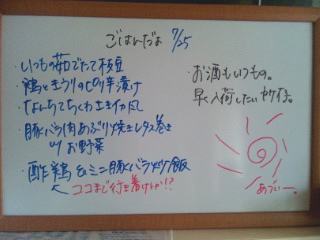 ごはんだよ 7/25
・いつもの茹でたて枝豆
・鶏ときうりのピリ辛漬け
・なんちてちくわ
・豚バラ肉あぶり焼きレタス巻き
〃 お野菜
・酢鶏 & ミニ豚バラ炒飯
ココまで行き着けるか!?
お酒もいつもの。
早く入荷したい
あづぃー。